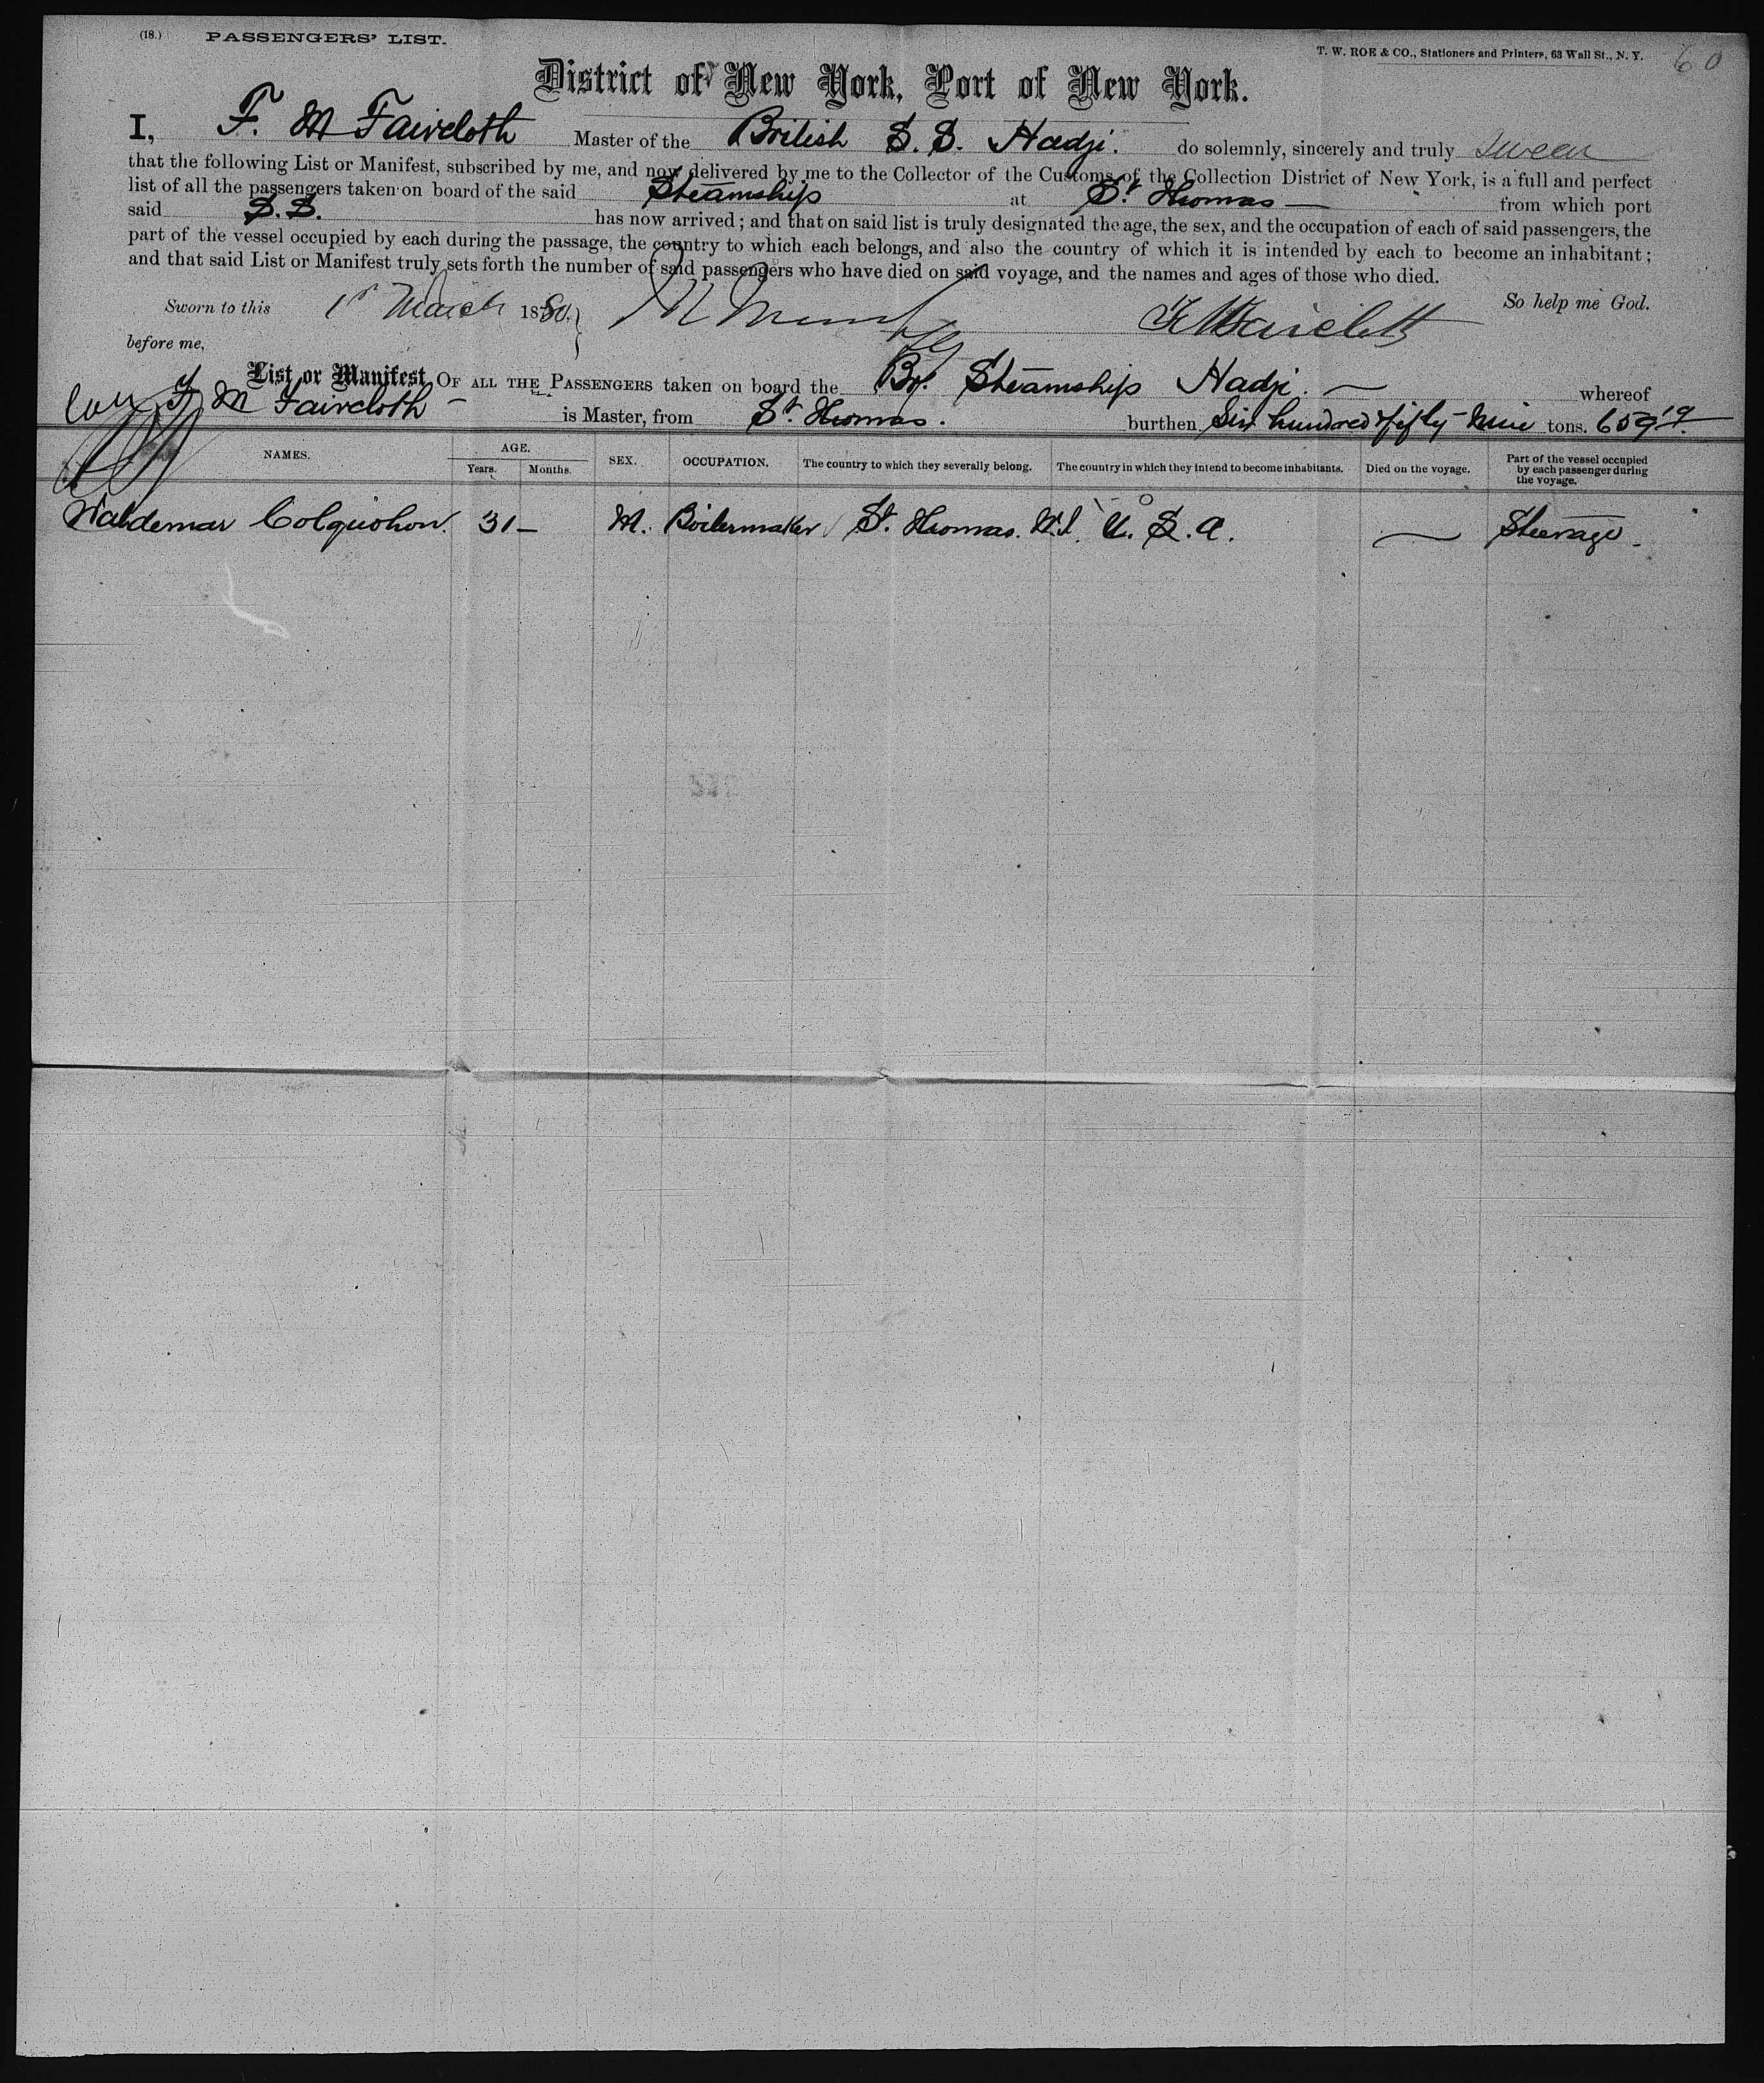 (18.) PASSENGERS' LIST.
T. W. ROE & CO., Stationers and Printers, 63 Wall St., N. Y. 60
District of New York, Port of New York.
I, F. M Faircloth Master of the British S. S. Hadji. do solemnly, sincerely and truly swear
that the following List or Manifest, subscribed by me, and now delivered by me to the Collector of the Customs of the Collection District of New York, is a full and perfect
list of all the passengers taken on board of the said Steamship at St. Thomas — from which port
said S. S. has now arrived; and that on said list is truly designated the age, the sex, and the occupation of each of said passengers, the
part of the vessel occupied by each during the passage, the country to which each belongs, and also the country of which it is intended by each to become an inhabitant;
and that said List or Manifest truly sets forth the number of said passengers who have died on said voyage, and the names and ages of those who died.
So help me God.
Sworn to this 1st March 1880. F M Faircloth
before me,
List or Manifest OF ALL THE PASSENGERS taken on board the Br. Steamship Hadji. — whereof
F M Faircloth — is Master, from St. Thomas. burthen Six hundred & fifty-nine tons. 659
NAMES. AGE. Years. Months. SEX. OCCUPATION. The country to which they severally belong. The country in which they intend to become inhabitants. Died on the voyage. Part of the vessel occupied by each passenger during the voyage.
Waldemar Colquohon. 31 — M. Boilermaker St. Thomas. W.I. U. S. A. — Steerage —